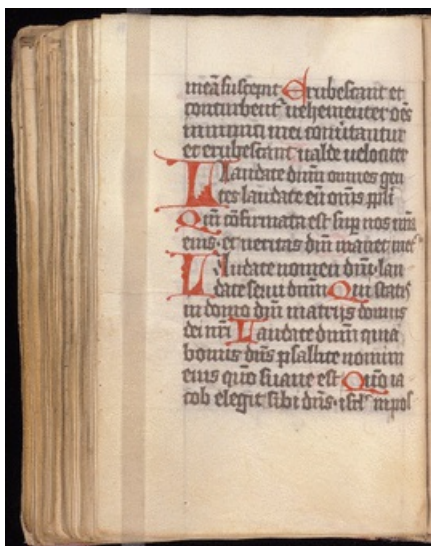 meā suscepit Erubescant et
conturbent᷑ uehementer oēs
inimici mei conūtantur
et erubescant ualde uelociter
Laudate dnm̄ omnes gen
tes laudate eū om̄s ppl̄i
Qm̄ cōfirmata est sup nos mīa
eius· et ueritas dnī manet
LAudate nomen dnī· lau
date serui dnm̄ Qui statis
in domo dnī in atrijs domus
dei nr̄i Laudate dnm̄ quia
bonus dn̄s psallite nomini
eius qm̄ suaue est Qm̄ ia
cob elegit sibi dn̄s· isrl̄